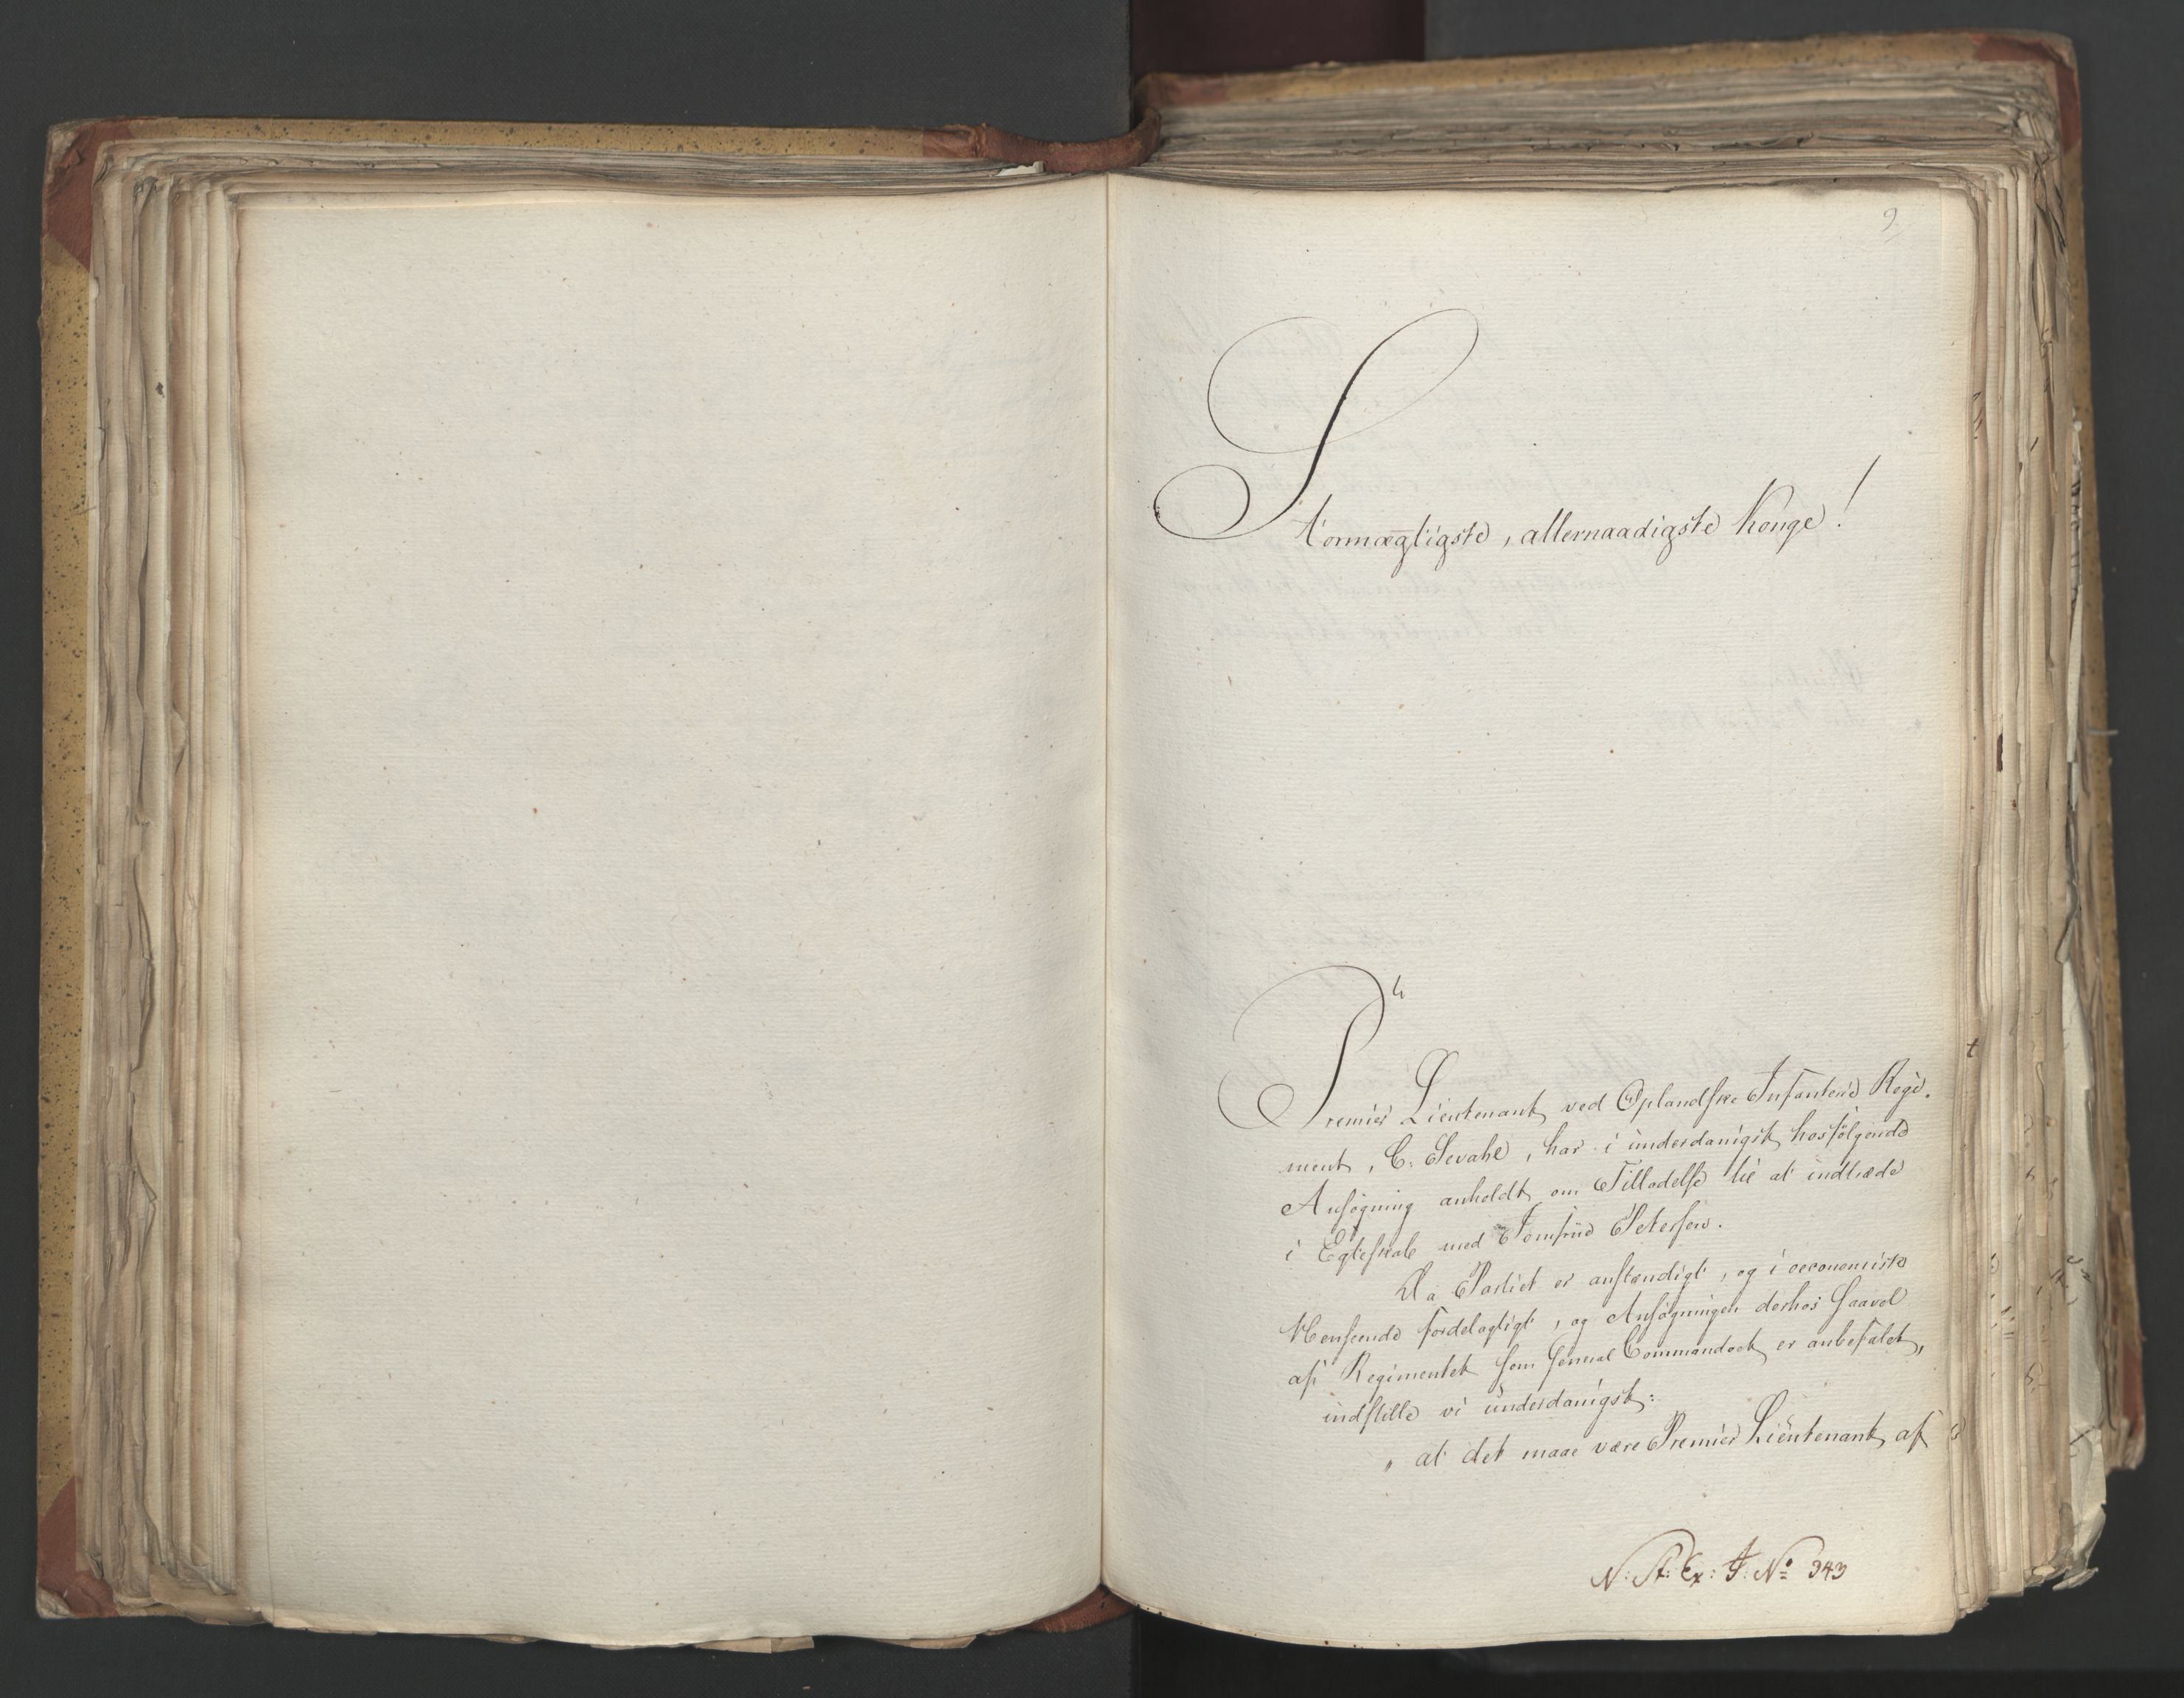 9.
Stormægtigste, allernaadigste Konge!
4
Premier Lieutenant ved Oplandske Infanterie Regi-
ment, C. Sevahl, har i underdanigst hosfølgende
Ansøgning anholdt om Tilladelse til at indtræde
i Egteskab med Jomfrue Petersen.
Da Partiet er anstændigt, og i oeconomiske
Henseende fordelagtigt, og Ansøgningen derhos saavel
af Regimentet som General Commandoet er anbefalet,
indstille vi underdanigst:
„ at det maae være Premier Lieutenant af
N: St: Ex: J: No 343